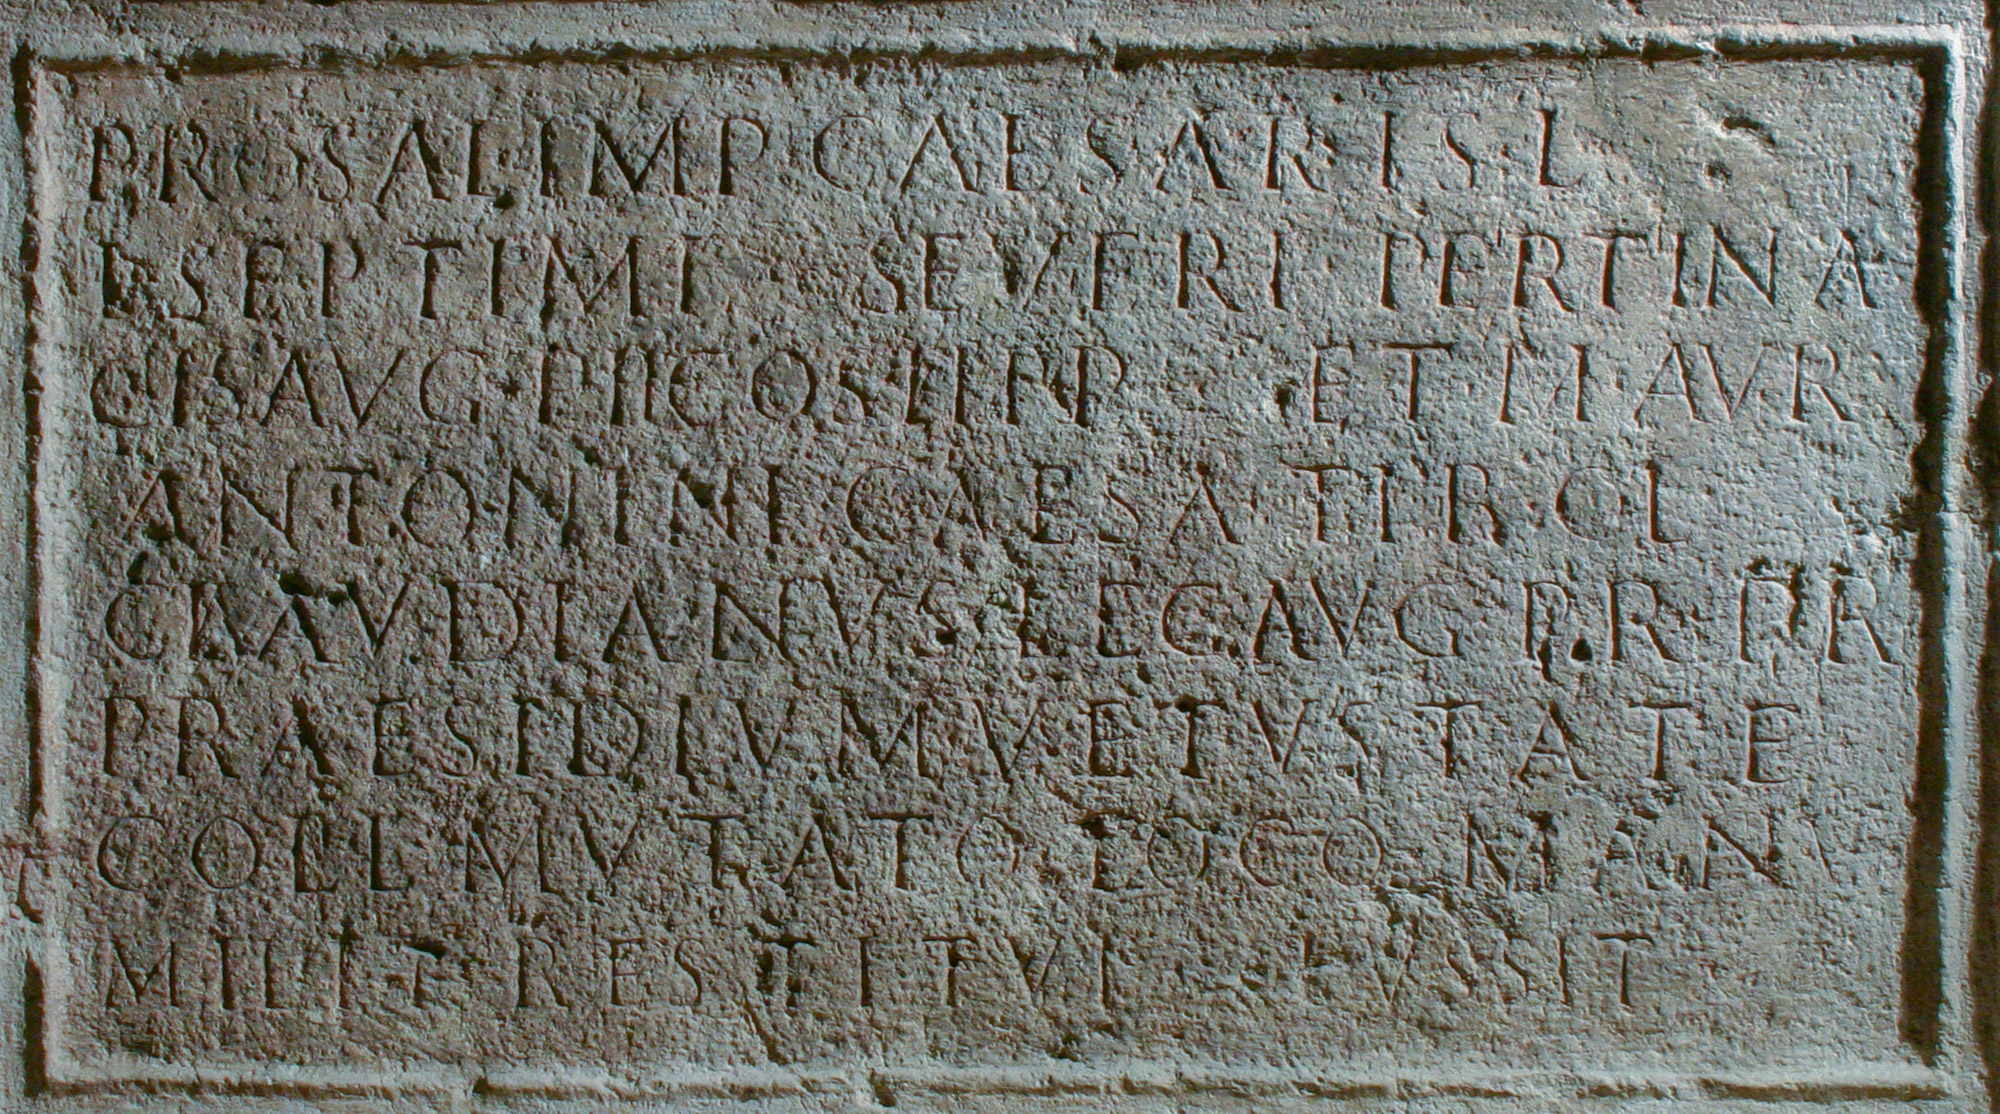 PRO SAL IMP CAESARIS L
L SEPTIMI SEVERI PERTINA
CIS AVG III COS II P P ET M AVR
ANTONINI CAESA TI R CL
CLAVDIANVS LEG AVG PR PR
PRAESIDIVM VETVSTATE
COLL MVTATO LOCO MANV
MILIT RESTITVI IVSSIT